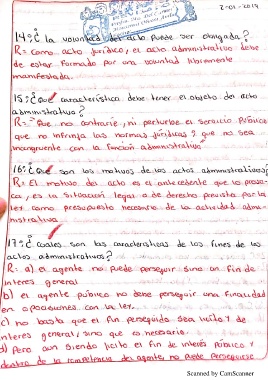 2-01-2019
14.¿ la voluntad del acto puede ser otorgada?
R= Como acto jurídico, el acto administrativo debe
de estar formado por una voluntad libremente
manifestada.
15.¿Qué característica debe tener el objeto del acto
administrativo?
R= Que no contrarie, ni perturbe el servicio Público
que no infrinja las normas jurídicas y que no sea
incongruente con la función administrativa
16.¿Qué son los motivos de los actos administrativos?
R= El motivo del acto es el antecedente que lo provo-
ca, es la situación legal o de derecho prevista por la
ley como presupuesto necesario de la actividad admi-
nistrativa
17.¿Cuales son las características de los fines de los
actos administrativos?
R= a) el agente no puede perseguir sino un fin de
interes general
b) el agente publico no debe perseguir una finalidad
en oposiciones con la ley.
c) no basta que el fin perseguido sea licito y de
interes general, sino que es necesario.
d) Pero aun siendo licito el fin de interés publico y
dentro de la competencia del agente no puede perseguirse
Scanned by CamScanner